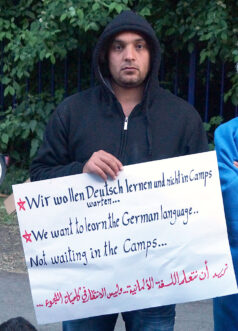 Wir wollen Deutsch lernen und nicht in Camps
warten...
We want to learn the German language..
Not waiting in the Camps...
نريد أن نتعلم اللغة الألمانية... وليس الانتظار في كامبات اللجوء...